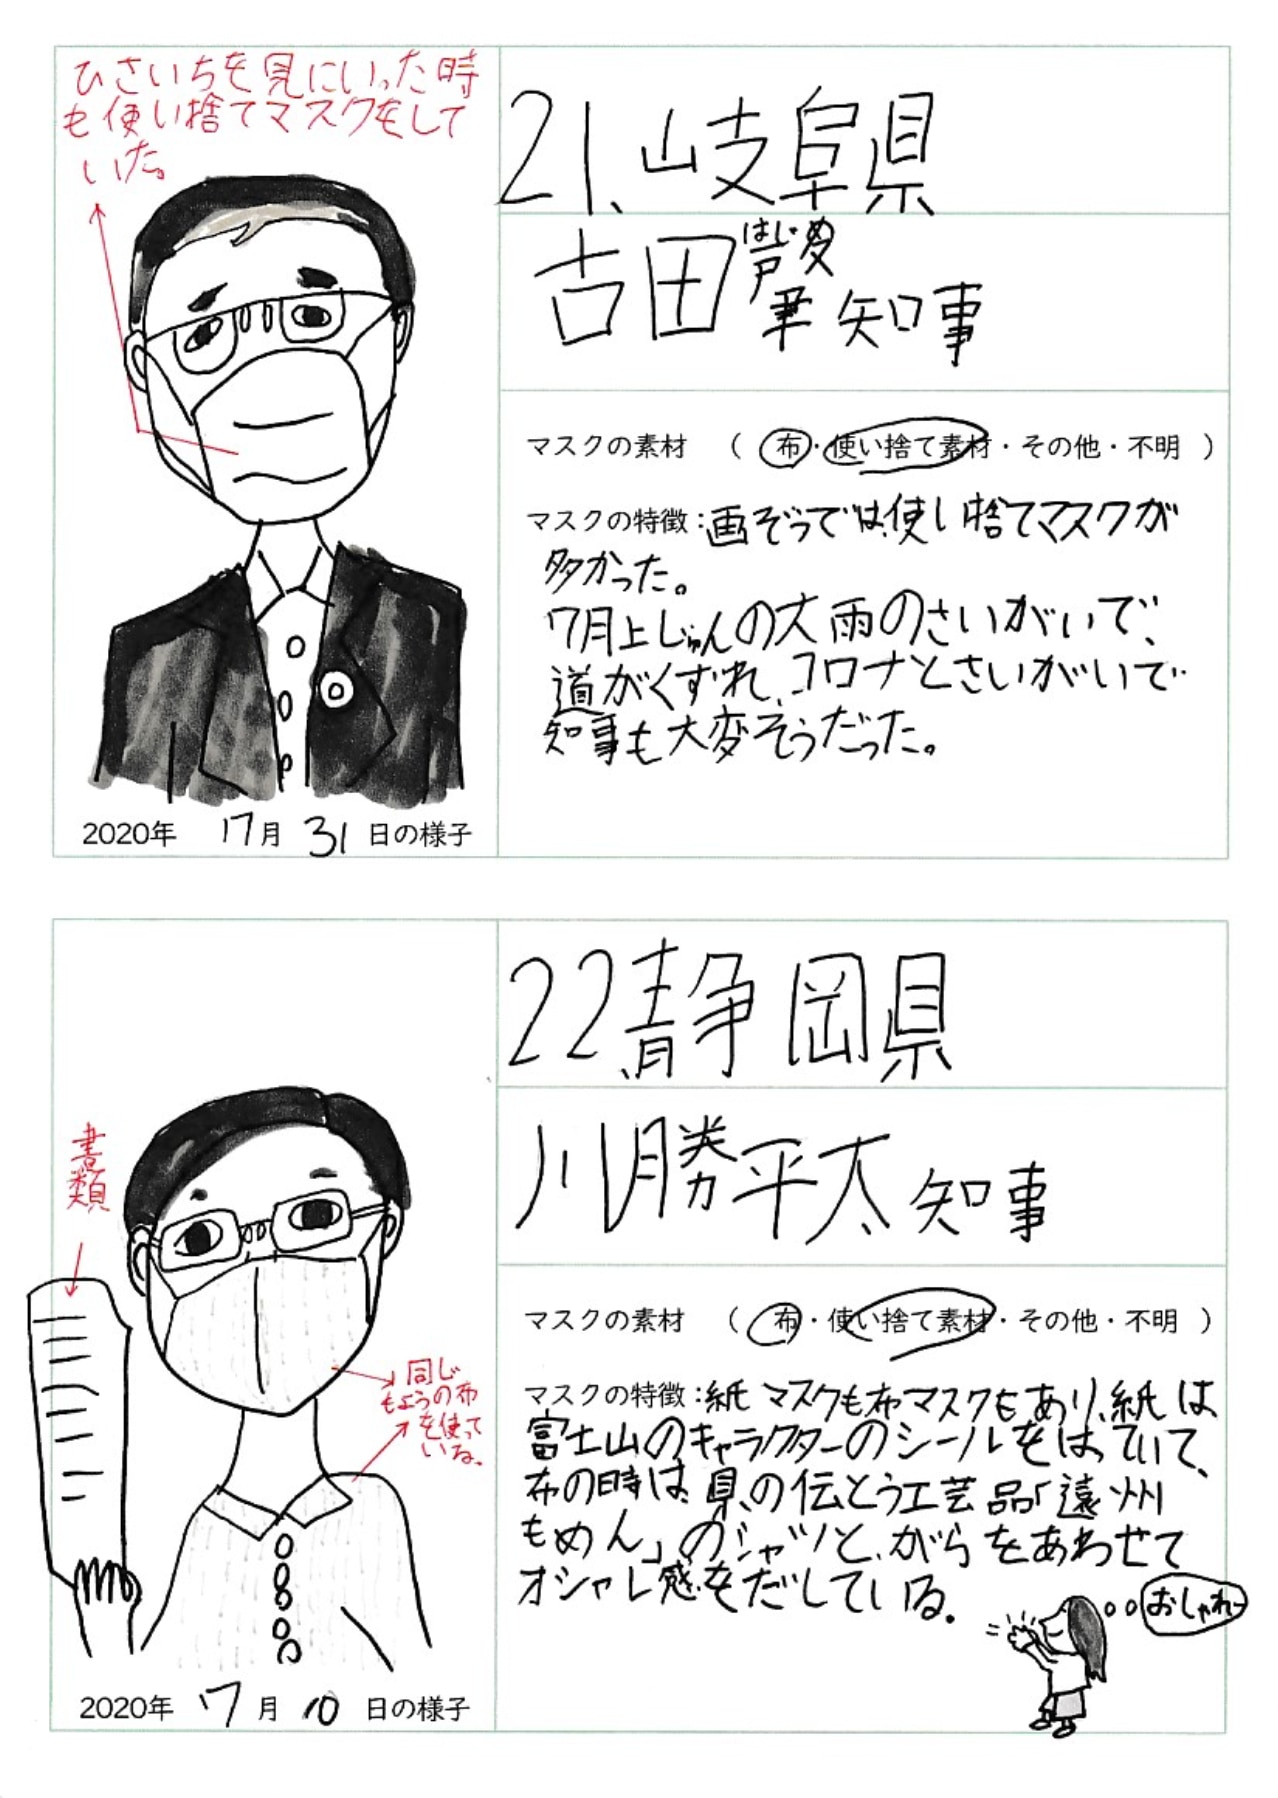 ひさいちを見にいった時
も使い捨てマスクをして
いた。
2020年 7月 31 日の様子
21、岐阜県
はじめ
古田肇 知事
マスクの素材 （ 布・使い捨て素材・その他・不明 ）
マスクの特徴：画ぞうでは、使い捨てマスクが
多かった。
7月上じゅんの大雨のさいがいで、
道がくずれ、コロナとさいがいで
知事も大変そうだった。
22、静岡県
川勝平太 知事
書類
同じ
もようの布
を使って
いる。
2020年 7月 10 日の様子
マスクの素材 （ 布・使い捨て素材・その他・不明 ）
マスクの特徴：紙マスクも布マスクもあり、紙は
富士山のキャラクターのシールをはっていて、
布の時は、県の伝とう工芸品「遠州
もめん」のシャツと、がらをあわせて
オシャレ感をだしている。
おしゃれー